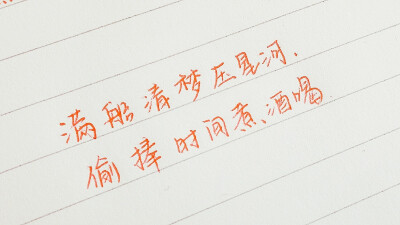 满船清梦压星河.
偷捧时间煮酒喝